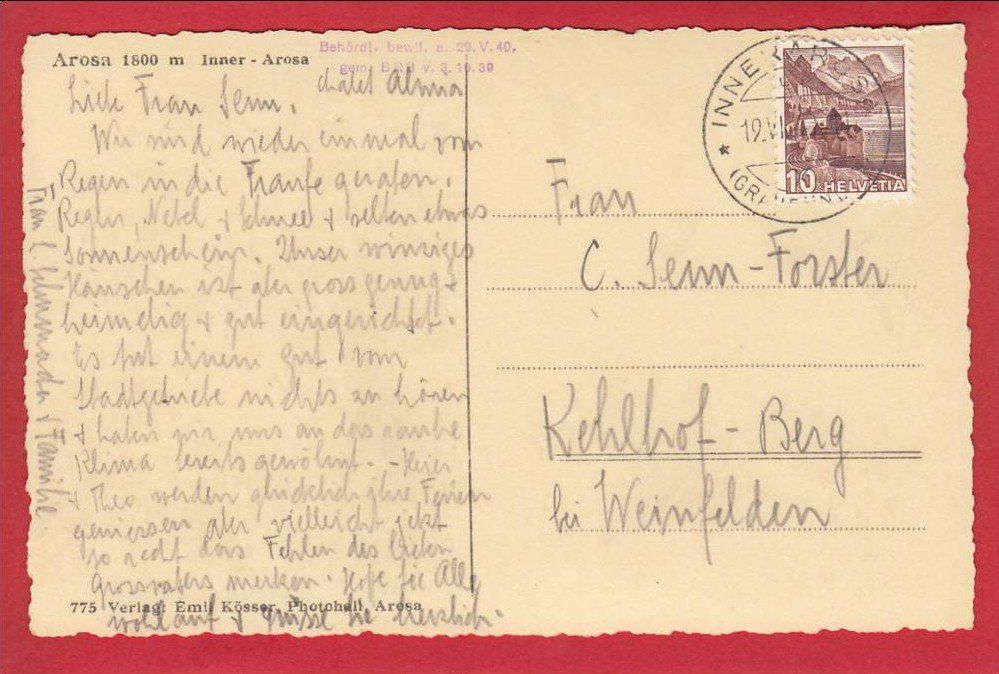 Arosa 1800 m Inner-Arosa
Behördl. bewil. a. 29. V. 40.
gem. BRB v. 3. 10. 39
Châlet Alma
Liebe Frau Senn,
Wir sind wieder einmal vom
Regen in die Traufe geraten.
Regen, Nebel + Schnee + selten etwas
Sonnenschein. Unser winziges
Häuschen ist aber gross genug +
heimelig + gut eingerichtet.
Es tut einem gut vom
Stadtgetriebe nichts zu hören
+ haben wir uns an das rauhe
Klima bereits gewöhnt. -
+ Theo werden glücklich ihre Ferien
geniessen aber vielleicht jetzt
so recht das Fehlen des lieben
Grossvaters merken. Hoffe Sie Alle
wohlauf + grüsse Sie herzlich
Frau L. + Familie
775 Verlag: Emil Kösser, Photohall, Arosa
INNER-AROSA
19.VI.
(GRAUBÜND
10 HELVETIA
Frau
C. Senn-Forster
Kehlhof-Berg
bei Weinfelden